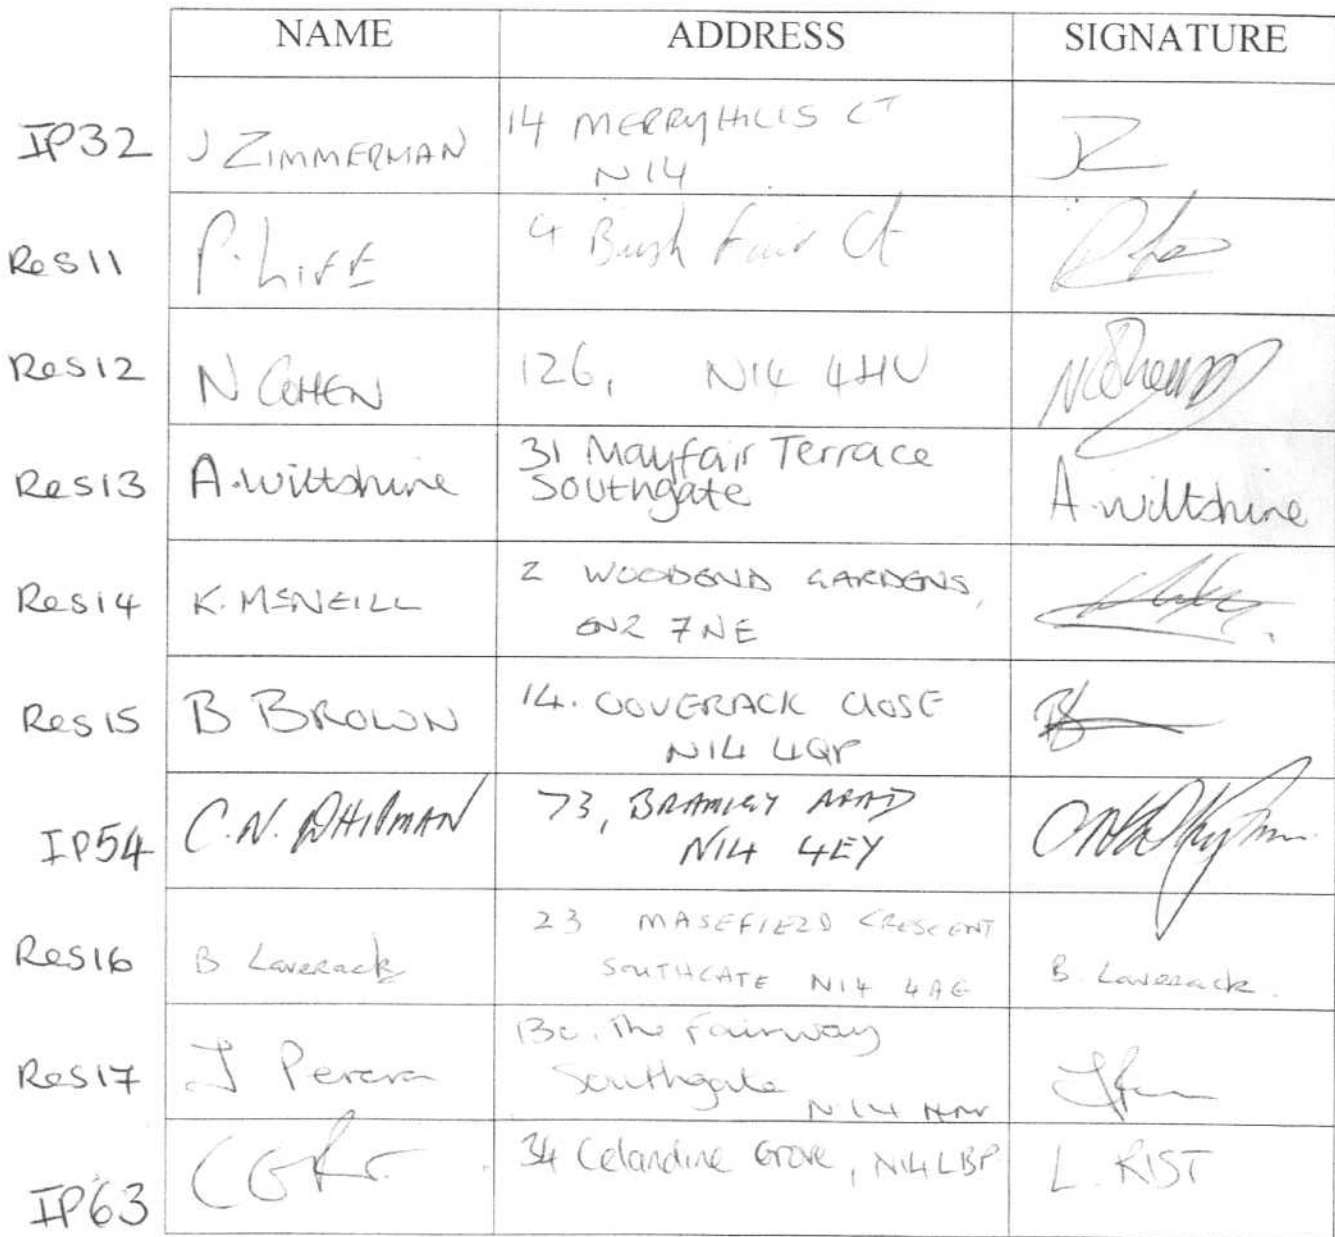 NAME ADDRESS SIGNATURE
IP32 J ZIMMERMAN 14 MERRYHILLS CT
N14
Res11 P. LIFE 4 Bush Fair Ct
Res12 N COHEN 126, N14 4HU
Res13 A. Wiltshire 31 Mayfair Terrace A. Wiltshire
Southgate
Res14 K. McNEILL 2 WOODEND GARDENS,
EN2 7NE
Res15 B BROWN 14. COVERACK CLOSE
N14 4QP
IP54 C.N. 73, BRAMLEY ROAD
N14 4EY
Res16 B Laverack 23 MASEFIELD CRESCENT B. Laverack.
SOUTHGATE N14 4AE
Res17 J Perera The Fairway
Southgate N14
IP63 34 Celandine Grove, L. RIST